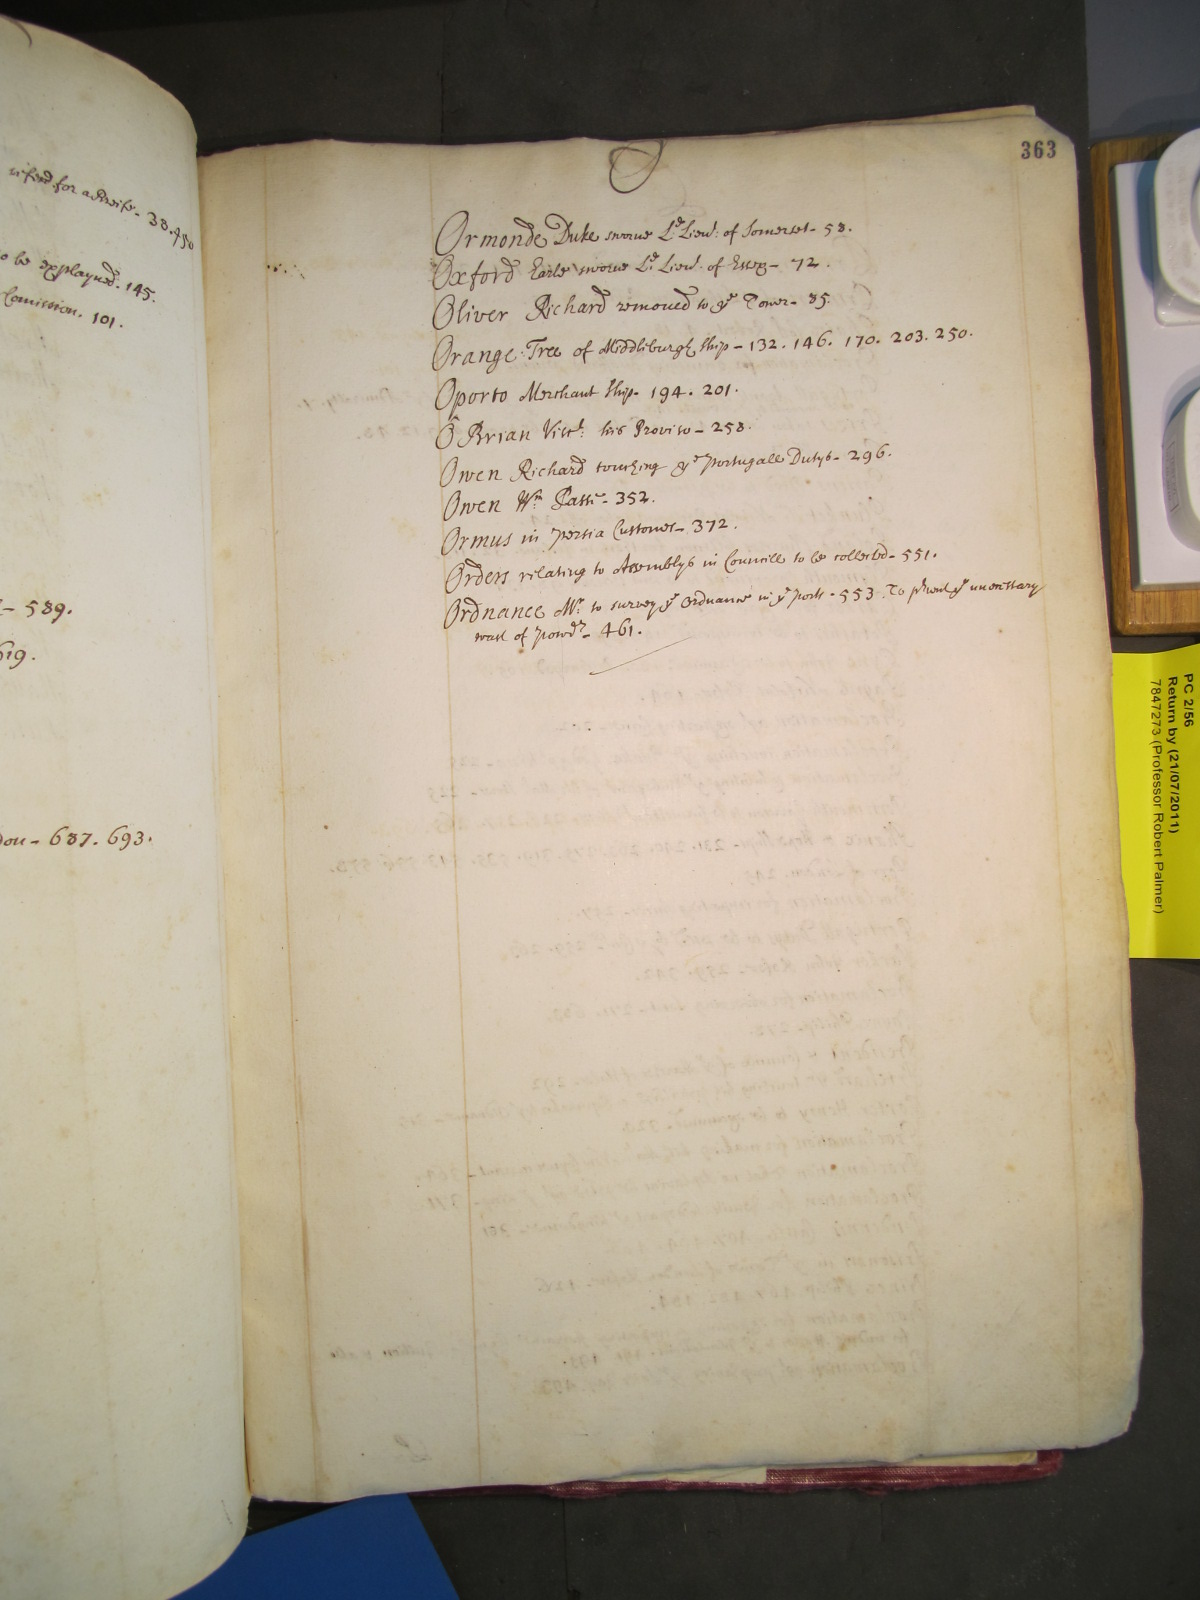 for a Wife - 38. 450
to be explayned. 145.
Comission. 101.
- 589.
619.
don - 687. 693.
363
O
Ormonde Duke sworne Ld. Lieut. of Somerset - 58.
Oxford Earle sworne Ld. Lieut. of Essex - 72.
Oliver Richard removed to ye Tower - 85.
Orange Tree of Middliburgh Ship - 132. 146. 170. 203. 250.
Oporto Merchant Ship - 194. 201.
O Brian Visct. his Proviso - 258.
Owen Richard touching ye Portugall Dutys - 296.
Owen Wm. Passe - 352.
Ormus in Persia Customes - 372.
Orders relating to Assemblys in Councill to be collected - 551.
Ordnance Mr. to survey ye Ordnance in ye ports - 553. To pvent ye unecessary
wast of Powdr. - 461.
PC 2/56
Return by (21/07/2011)
7847273 (Professor Robert Palmer)